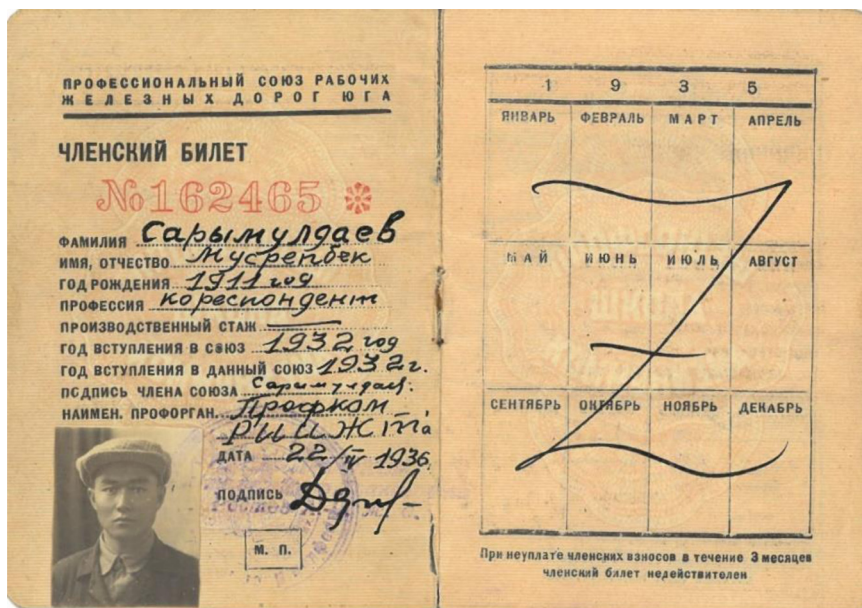 ПРОФЕССИОНАЛЬНЫЙ СОЮЗ РАБОЧИХ
ЖЕЛЕЗНЫХ ДОРОГ ЮГА
ЧЛЕНСКИЙ БИЛЕТ
№162465
ФАМИЛИЯ Сарымулдаев
ИМЯ, ОТЧЕСТВО Жусрепбек
ГОД РОЖДЕНИЯ 1911 год
ПРОФЕССИЯ Кореспондент
ПРОИЗВОДСТВЕННЫЙ СТАЖ
ГОД ВСТУПЛЕНИЯ В СОЮЗ 1932 год
ГОД ВСТУПЛЕНИЯ В ДАННЫЙ СОЮЗ 1932 г.
ПОДПИСЬ ЧЛЕНА СОЮЗА Сарымулдаев.
НАИМЕН. ПРОФОРГАН. Профком
РИИЖТа
ДАТА 22/IV 1936
ПОДПИСЬ
М. П.
1 9 3 5
ЯНВАРЬ ФЕВРАЛЬ МАРТ АПРЕЛЬ
МАЙ ИЮНЬ ИЮЛЬ АВГУСТ
СЕНТЯБРЬ ОКТЯБРЬ НОЯБРЬ ДЕКАБРЬ
При неуплате членских взносов в течение 3 месяцев
членский билет недействителен